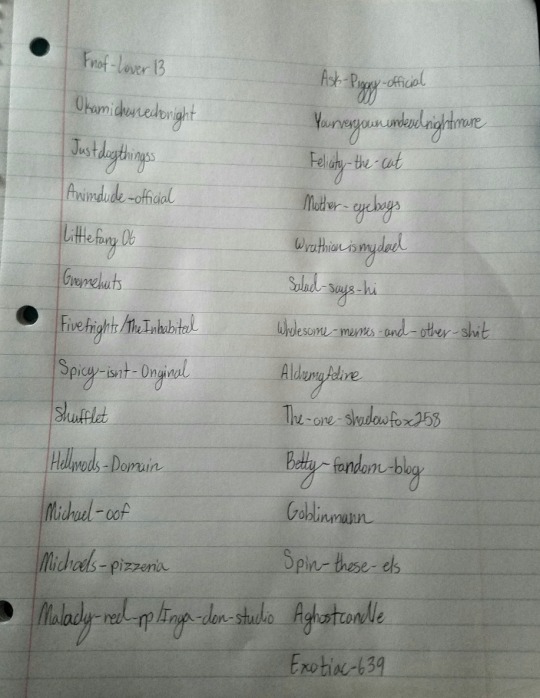 Fnof-Lover 13
Okamichanedtonight
Justdogthingss
Animdude-official
Littlefang06
Gnomehuts
Fivefrights/TheInhabited
Spicy-isnt-Original
Shufflet
Hellmods-Domain
Michael-oof
Michaels-pizzeria
Malady-red-rp/Inga-don-studio
Ask-Piggy-official
Yourveryownundeadnightmare
Felicity-the-cat
Mother-eyebags
Wrathionismydad
Salad-says-hi
Wholesome-memes-and-other-shit
The-one-shadowfox258
Betty-fandom-blog
Goblinmann
Spin-these-els
Aghostcandle
Exotiac-639